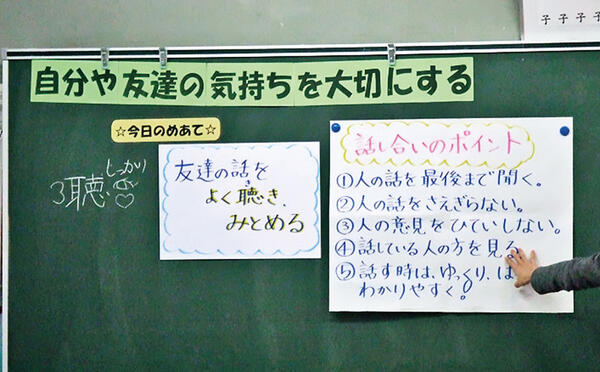 自分や友達の気持ちを大切にする
☆今日のめあて☆
しっかり
聴
友達の話を
よく聴き、
みとめる
話し合いのポイント
①人の話を最後まで聞く。
②人の話をさえぎらない。
③人の意見をひていしない。
④話している人の方を見る
⑤話す時は、ゆっくり、は
わかりやすく。
子子子子